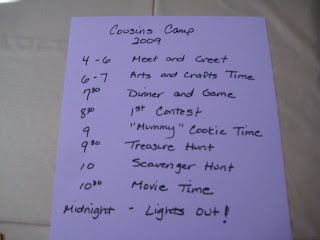 Cousins Camp
2009
4-6 Meet and Greet
6-7 Arts and Crafts Time
7³⁰ Dinner and Game
8³⁰ 1st Contest
9 "Mummy" Cookie Time
9³⁰ Treasure Hunt
10 Scavenger Hunt
10³⁰ Movie Time
Midnight - Lights Out!